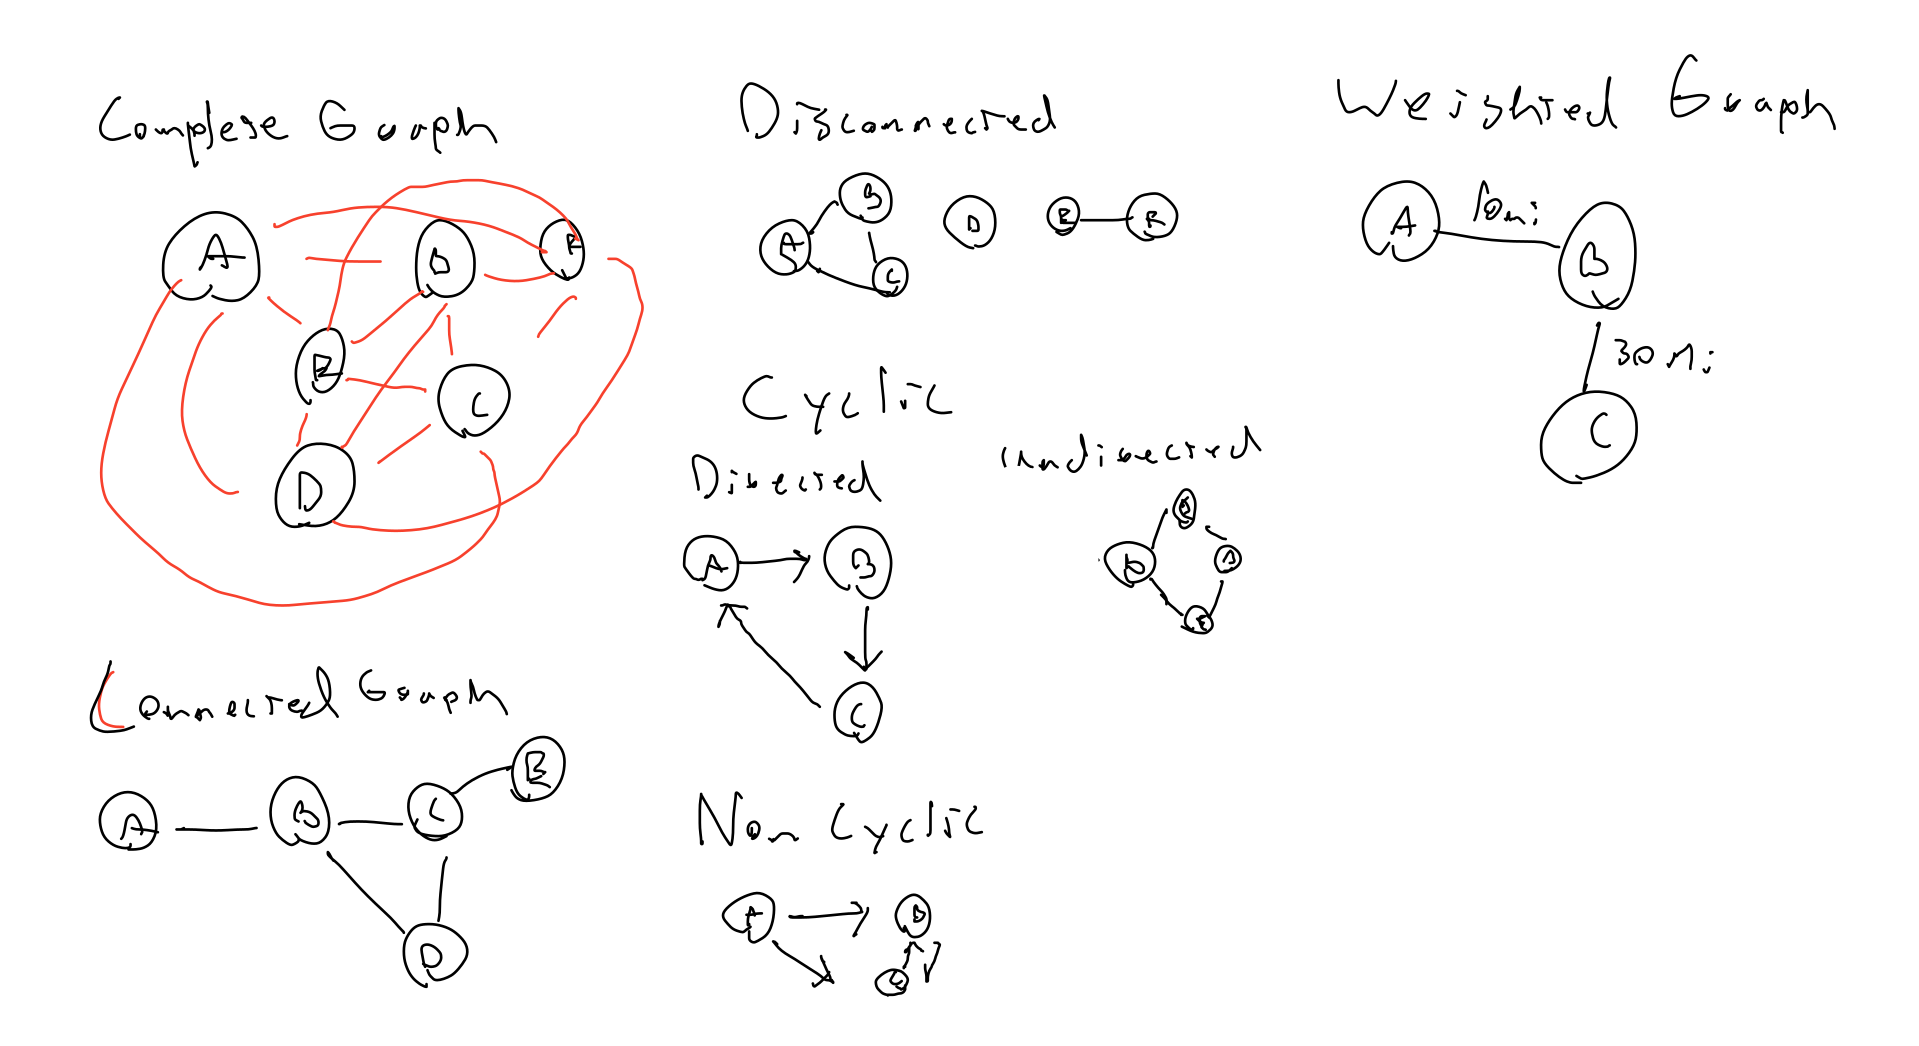 Complete Graph
A
B
F
E
C
D
Connected Graph
A
B
C
E
D
Disconnected
A
B
C
D
E
F
Cyclic
Directed
A
B
C
undirected
D
Non Cyclic
A
B
C
Weighted Graph
A
10mi
B
30 Mi
C